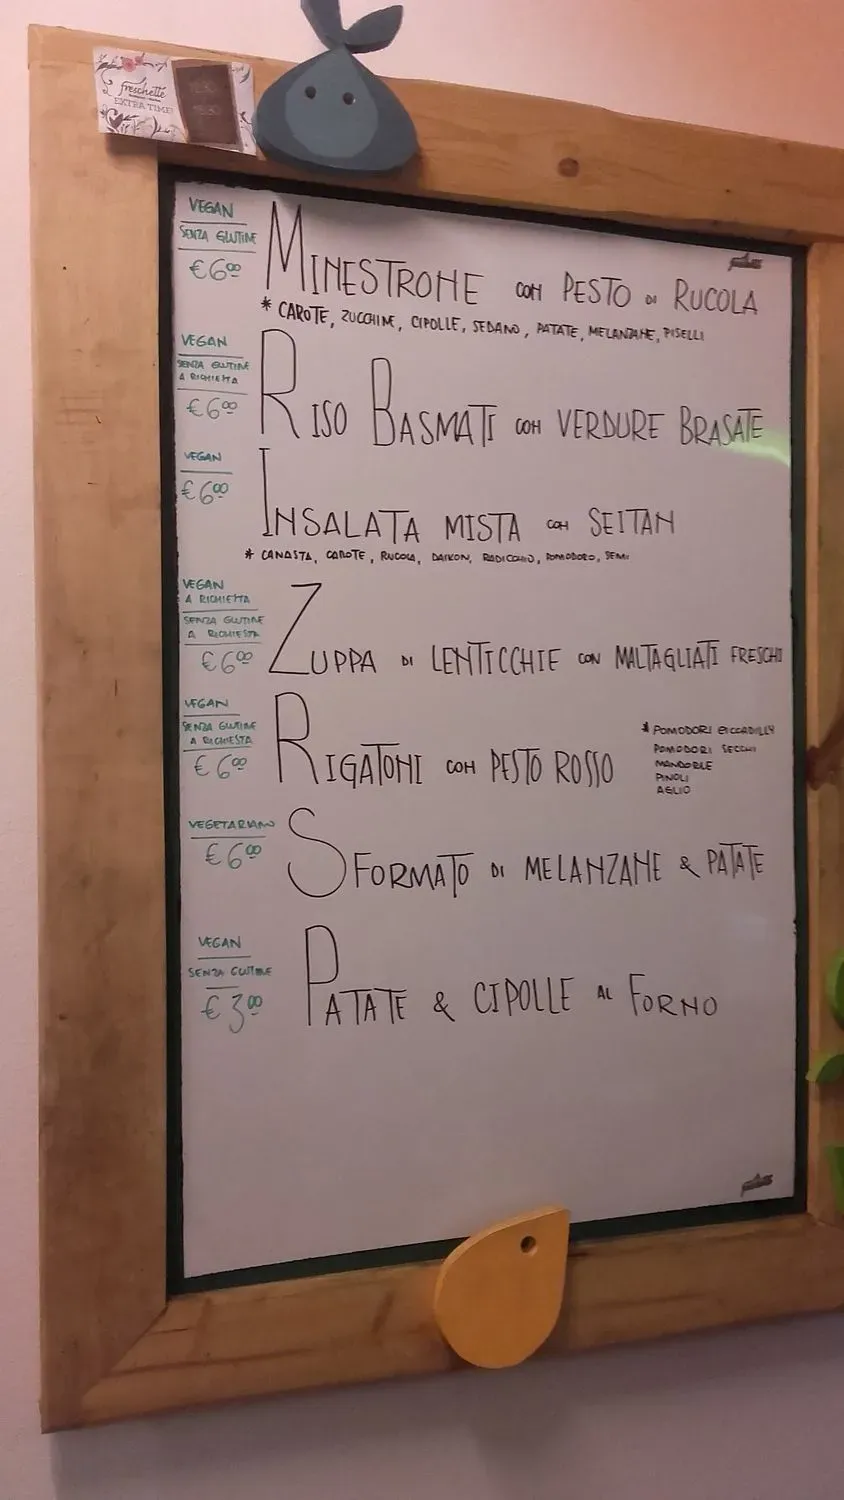 freschette
EXTRA TIME!
VEGAN
SENZA GLUTINE
€6⁰⁰
MINESTRONE CON PESTO DI RUCOLA
* CAROTE, ZUCCHINE, CIPOLLE, SEDANO, PATATE, MELANZANE, PISELLI
VEGAN
SENZA GLUTINE
A RICHIESTA
€6⁰⁰
RISO BASMATI CON VERDURE BRASATE
VEGAN
€6⁰⁰
INSALATA MISTA CON SEITAN
* CANASTA, CAROTE, RUCOLA, DAIKON, RADICCHIO, POMODORO, SEMI
VEGAN
A RICHIESTA
SENZA GLUTINE
A RICHIESTA
€6⁰⁰
ZUPPA DI LENTICCHIE CON MALTAGLIATI FRESCHI
VEGAN
SENZA GLUTINE
A RICHIESTA
€6⁰⁰
RIGATONI CON PESTO ROSSO
* POMODORI PICCADILLY
POMODORI SECCHI
MANDORLE
PINOLI
AGLIO
VEGETARIANO
€6⁰⁰
SFORMATO DI MELANZANE & PATATE
VEGAN
SENZA GLUTINE
€3⁰⁰
PATATE & CIPOLLE AL FORNO